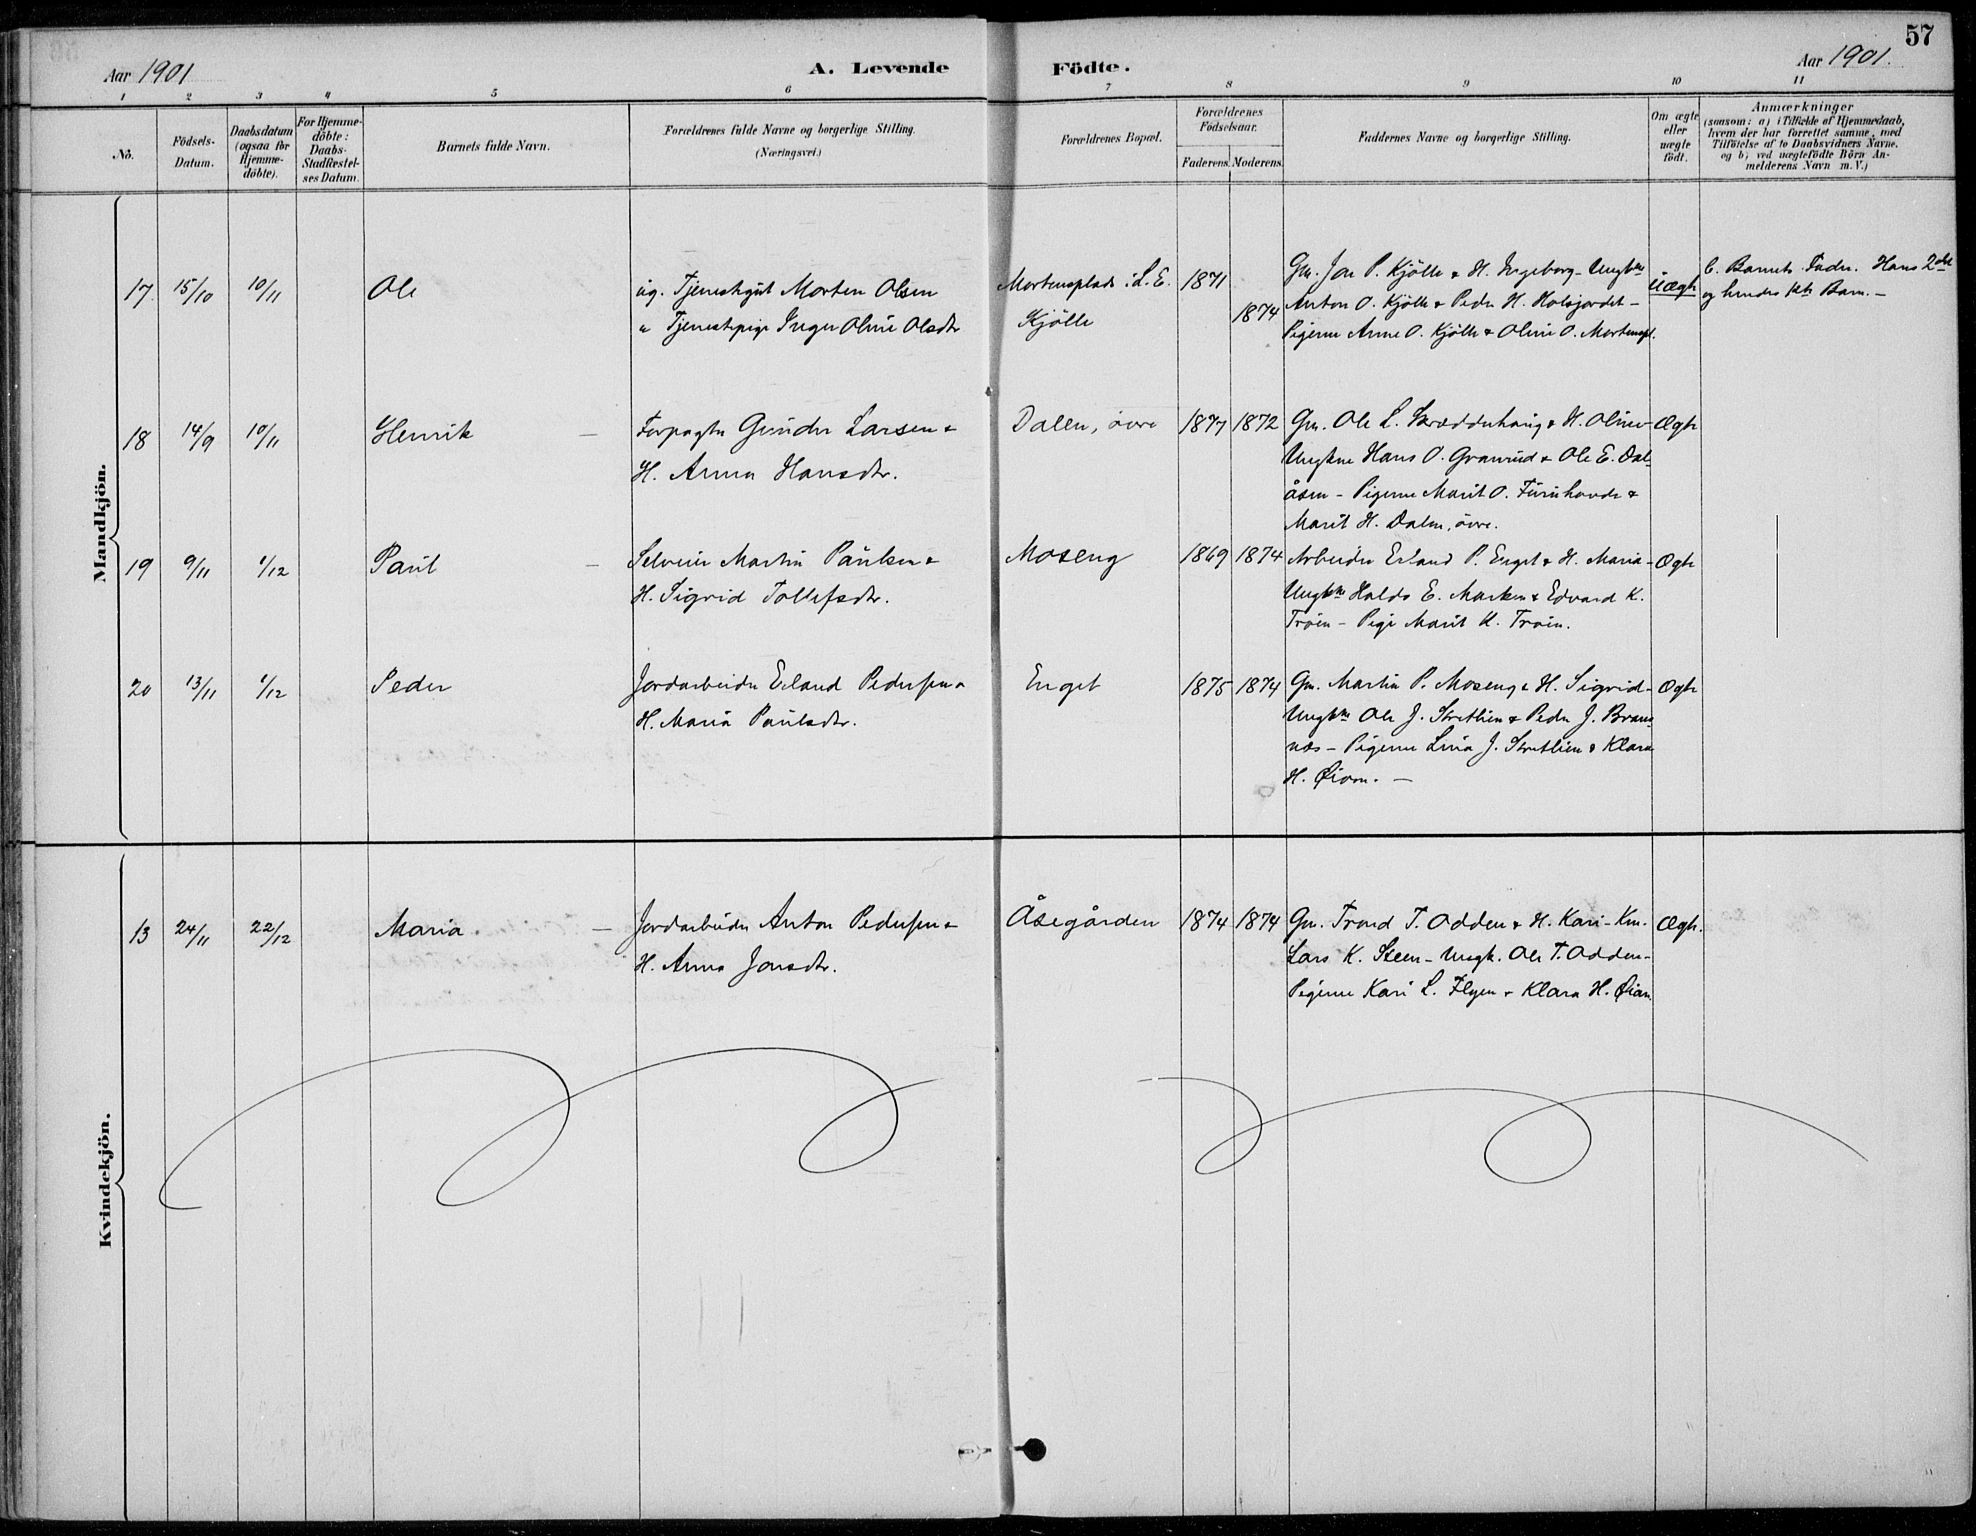 57
Aar 1901
A. Levende Födte.
Aar 1901.
1 2 3 4 5 6 7 8 9 10 11
No.
Födsels-
Datum.
Daabsdatum
(ogsaa for
Hjemme-
döbte).
For Hjemme-
döbte:
Daabs-
Stadfæstel-
ses Datum.
Barnets fulde Navn.
Forældrenes fulde Navne og borgerlige Stilling.
(Næringsvei.)
Forældrenes Bopæl.
Forældrenes
Födselsaar.
Faderens. Moderens.
Faddernes Navne og borgerlige Stilling.
Om ægte
eller
uægte
født.
Anmærkninger
(saasom: a) i Tilfælde af Hjemmedaab,
hvem der har forrettet samme, med
Tilföielse af to Daabsvidners Navne,
og b) ved uægtefödte Börn An-
melderens Navn m. V.)
Mandkjön.
17. 15/10 10/11 Ole
ug. Tjenestegut Morten Olsen
" Tjenestepige Inger Oline Olsdtr
Mortensplads i L. E.
Kjölle
1871
1874
Gm. Jon P. Kjölle & H. Ingeborg - Ungkne
Anton O. Kjölle & Peder H. Holsjordet -
Pigerne Anne O. Kjölle & Oline O. Mortenspl.
Uægte
b. Barnets Fader. Hans 2det
og hendes 1ste Barn. -
18 14/9 10/11 Henrik -
Forpagter Gunder Larsen &
H. Anna Hansdtr.
Dalen, övre
1877 1872
Gm. Ole L. Skrædderhaug & H. Oline -
Ungkne Hans O. Granrud & Ole E. Dal-
åsen - Pigerne Marit O. Furuhovde &
Marit H. Dalen, övre.
Ægte
19 9/11 1/12 Paul -
Selveier Martin Paulsen &
H. Sigrid Tollefsdtr.
Moseng
1869 1874
Arbeider Erland P. Enget & H. Maria -
Ungkne Haldo E. Moseng & Edvard K.
Tröen - Pige Marit K. Tröen.
Ægte
20 13/11 1/12 Peder
Jordarbeider Erland Pedersen &
H. Maria Paulsdtr.
Enget
1875 1874
Gm. Martin P. Moseng & H. Sigrid -
Ungkne Ole J. Stretlien & Peder J. Bræn
næs - Pigerne Lina J. Stretlien & Klara
H. Øiom. -
Ægte
Kvindekjön.
13 24/11 22/12 Maria. -
Jordarbeider Anton Pedersen &
H. Anna Jonsdtr.
Åsegården
1874 1874
Gm. Trond T. Odden & H. Kari - Km.
Lars K. Steen - Ungk. Ole T. Odden -
Pigerne Kari L. Flyen & Klara H. Øiom.
Ægte.